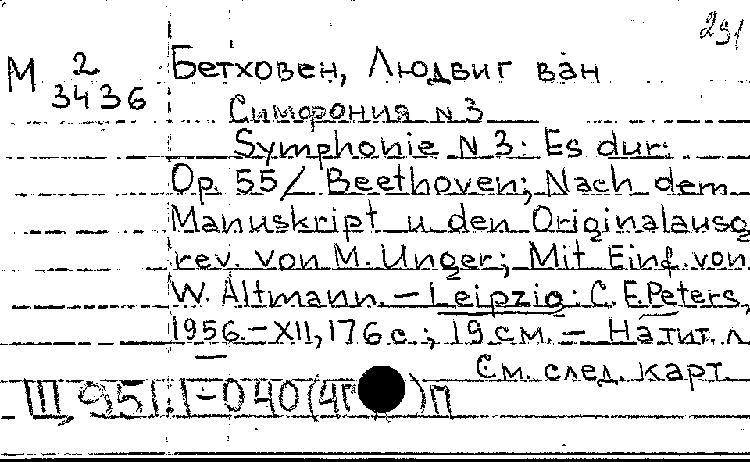 291
М 2
3436
Бетховен, Людвиг ван
Симфония N 3
Symphonie N 3: Es dur:
Op. 55 / Beethoven; Nach dem
Manuskript u den Originalausg
rev. von M. Unger; Mit Einf. von
W. Altmann. – Leipzig: C. F. Peters,
1956. – XII, 176 с.; 19 см. – На тит. л
См. след. карт.
III, 951.1-040(4Г )П